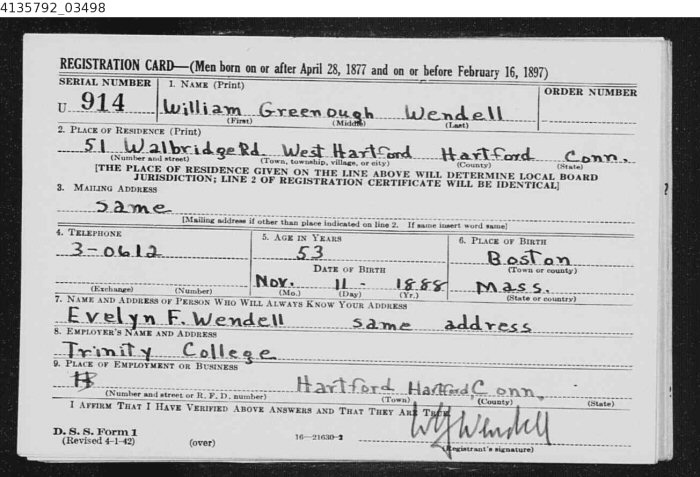 4135792_03498
REGISTRATION CARD—(Men born on or after April 28, 1877 and on or before February 16, 1897)
SERIAL NUMBER
1. NAME (Print)
ORDER NUMBER
U 914
William Greenough Wendell
(First) (Middle) (Last)
2. PLACE OF RESIDENCE (Print)
51 Walbridge Rd. West Hartford Hartford Conn.
(Number and street) (Town, township, village, or city) (County) (State)
[THE PLACE OF RESIDENCE GIVEN ON THE LINE ABOVE WILL DETERMINE LOCAL BOARD
JURISDICTION; LINE 2 OF REGISTRATION CERTIFICATE WILL BE IDENTICAL]
3. MAILING ADDRESS
same
[Mailing address if other than place indicated on line 2. If same insert word same]
4. TELEPHONE
5. AGE IN YEARS
6. PLACE OF BIRTH
3-0612
53
Boston
(Town or county)
DATE OF BIRTH
Nov. 11 - 1888
Mass.
(Exchange) (Number)
(Mo.) (Day) (Yr.)
(State or country)
7. NAME AND ADDRESS OF PERSON WHO WILL ALWAYS KNOW YOUR ADDRESS
Evelyn F. Wendell same address
8. EMPLOYER'S NAME AND ADDRESS
Trinity College
9. PLACE OF EMPLOYMENT OR BUSINESS
Hartford Hartford, Conn.
(Number and street or R. F. D. number) (Town) (County) (State)
I AFFIRM THAT I HAVE VERIFIED ABOVE ANSWERS AND THAT THEY ARE TRUE.
WG Wendell
D. S. S. Form 1
(Revised 4-1-42) (over) 16—21630-2
(Registrant's signature)